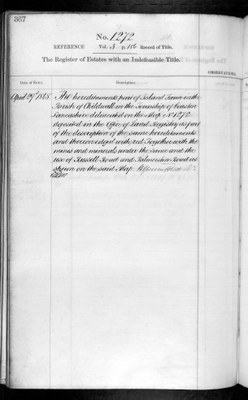 567
No. 1272
REFERENCE Vol. 3 p. 116 Record of Title.
The Register of Estates with an Indefeasible Title.
Date of Entry. Description.
April 29th 1865 The hereditaments part of Island in the
Parish of Childwall in the Township of
Lancashire delineated on the Map No 1272
deposited in the Office of Land Registry as part
of the description of the same hereditaments
and thereon edged with red Together with the
mines and minerals under the same and the
use of Russell Road and Palmerston Road as
shewn on the said Map